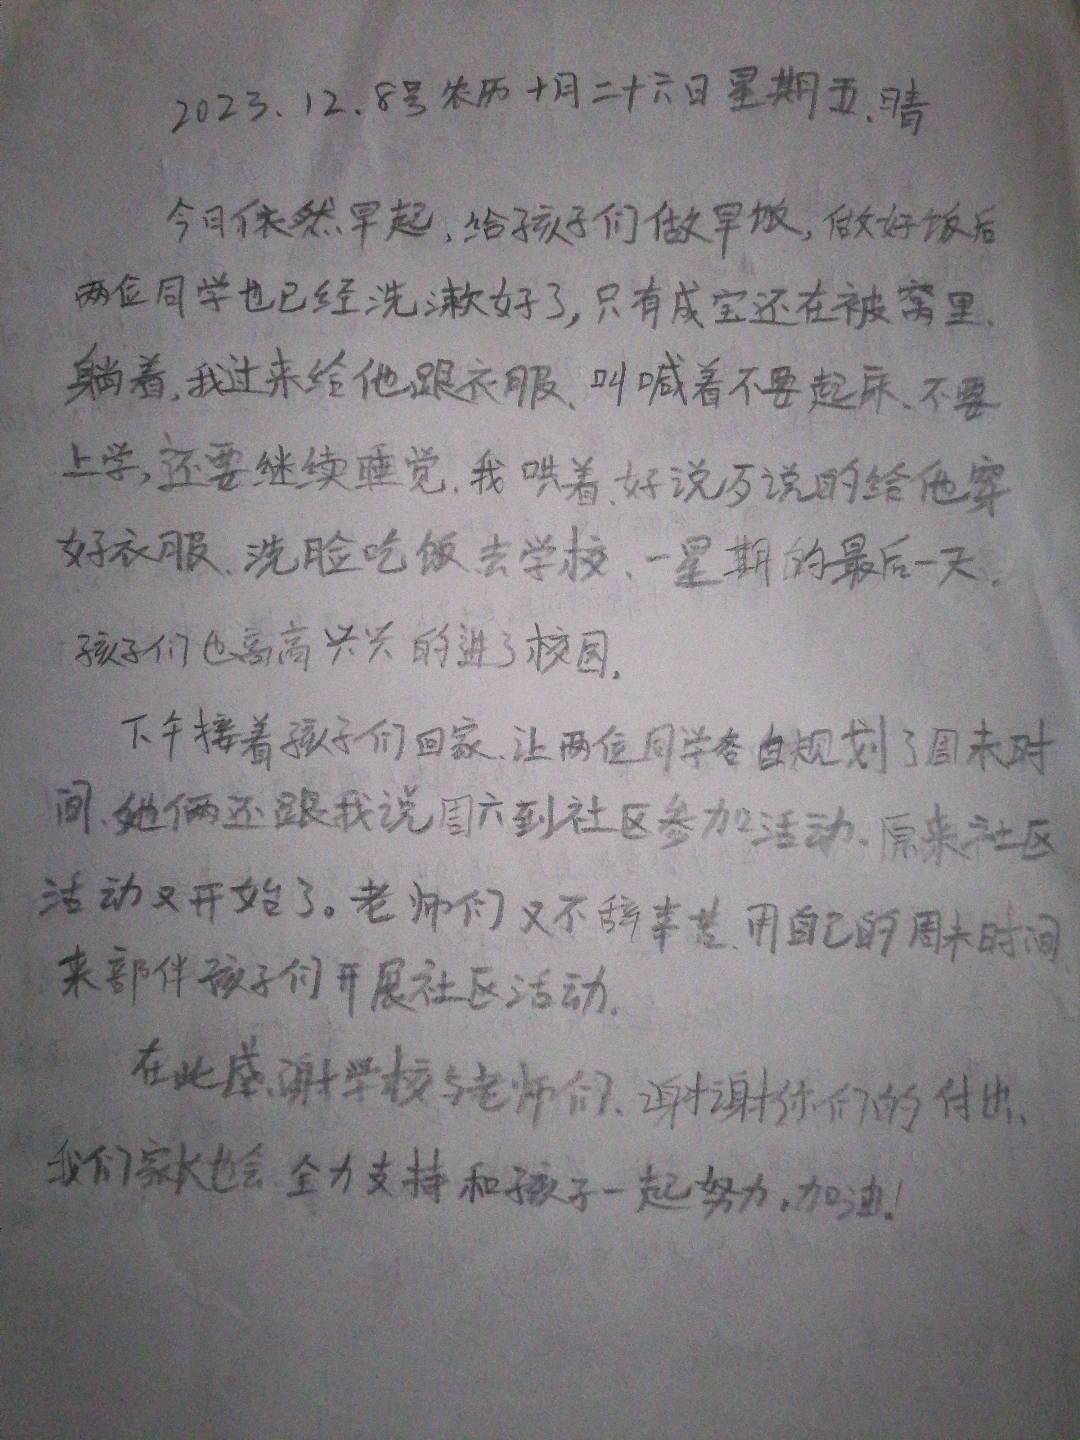 2023.12.8号农历十月二十六日星期五、晴
今日依然早起,给孩子们做早饭,做好饭后
两位同学也已经洗漱好了,只有成宝还在被窝里、
躺着,我过来给他跟衣服、叫喊着不要起床、不要
上学,还要继续睡觉.我哄着、好说歹说的给他穿
好衣服、洗脸吃饭去学校、一星期的最后一天.
孩子们也高高兴兴的进了校园.
下午接着孩子们回家、让两位同学各自规划了周末时
间、她俩还跟我说周六到社区参加活动、原来社区
活动又开始了。老师们又不辞辛苦、用自己的周末时间
来部伴孩子们开展社区活动.
在此感谢学校与老师们、谢谢你们的付出、
我们家长也会全力支持和孩子一起努力,加油!